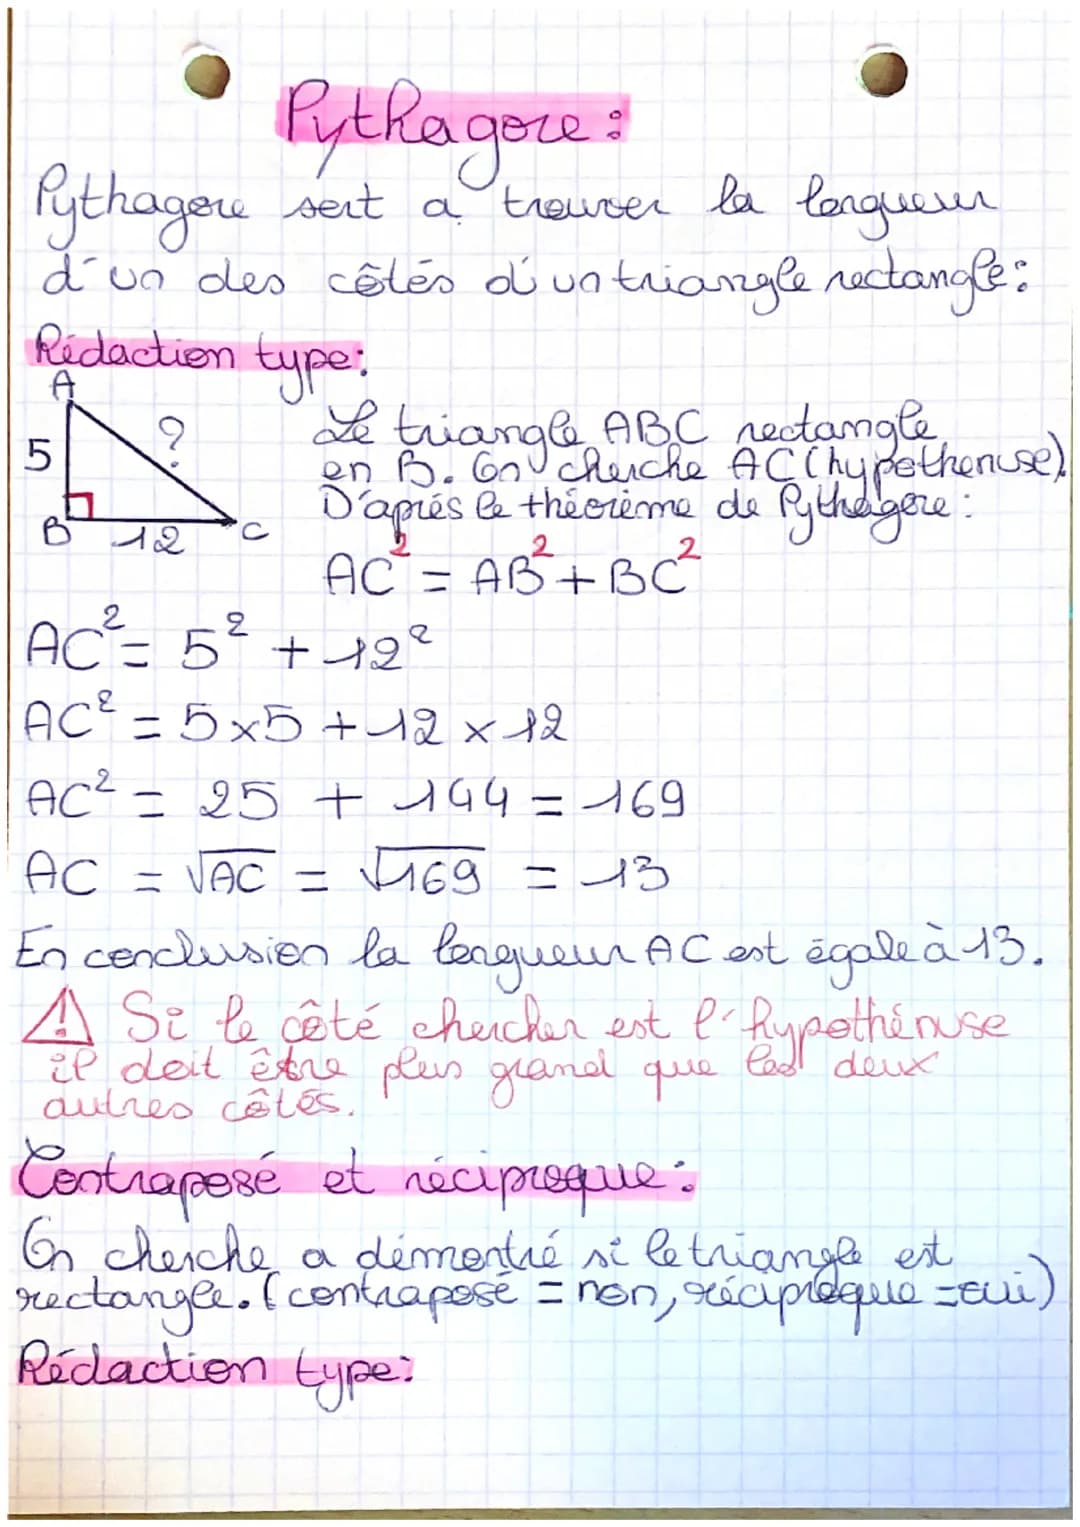 Pythagore :
Pythagore sert a trouver la longueur
d'un des côtés d'un triangle rectangle :
Rédaction type :
A
5
?
B
12
C
Le triangle ABC rectangle
en B. On cherche AC (hypothenuse).
D'aprés le théorème de Pythagore :
AC² = AB² + BC²
AC² = 5² + 12²
AC² = 5 x 5 + 12 x 12
AC² = 25 + 144 = 169
AC = √AC = √169 = 13
En conclusion la longueur AC est égale à 13.
⚠ Si le côté chercher est l'hypothénuse
il doit être plus grand que les deux
autres côtés.
Contraposé et réciproque :
On cherche a démontré si le triangle est
rectangle. (contraposé = non, réciproque = oui)
Rédaction type :